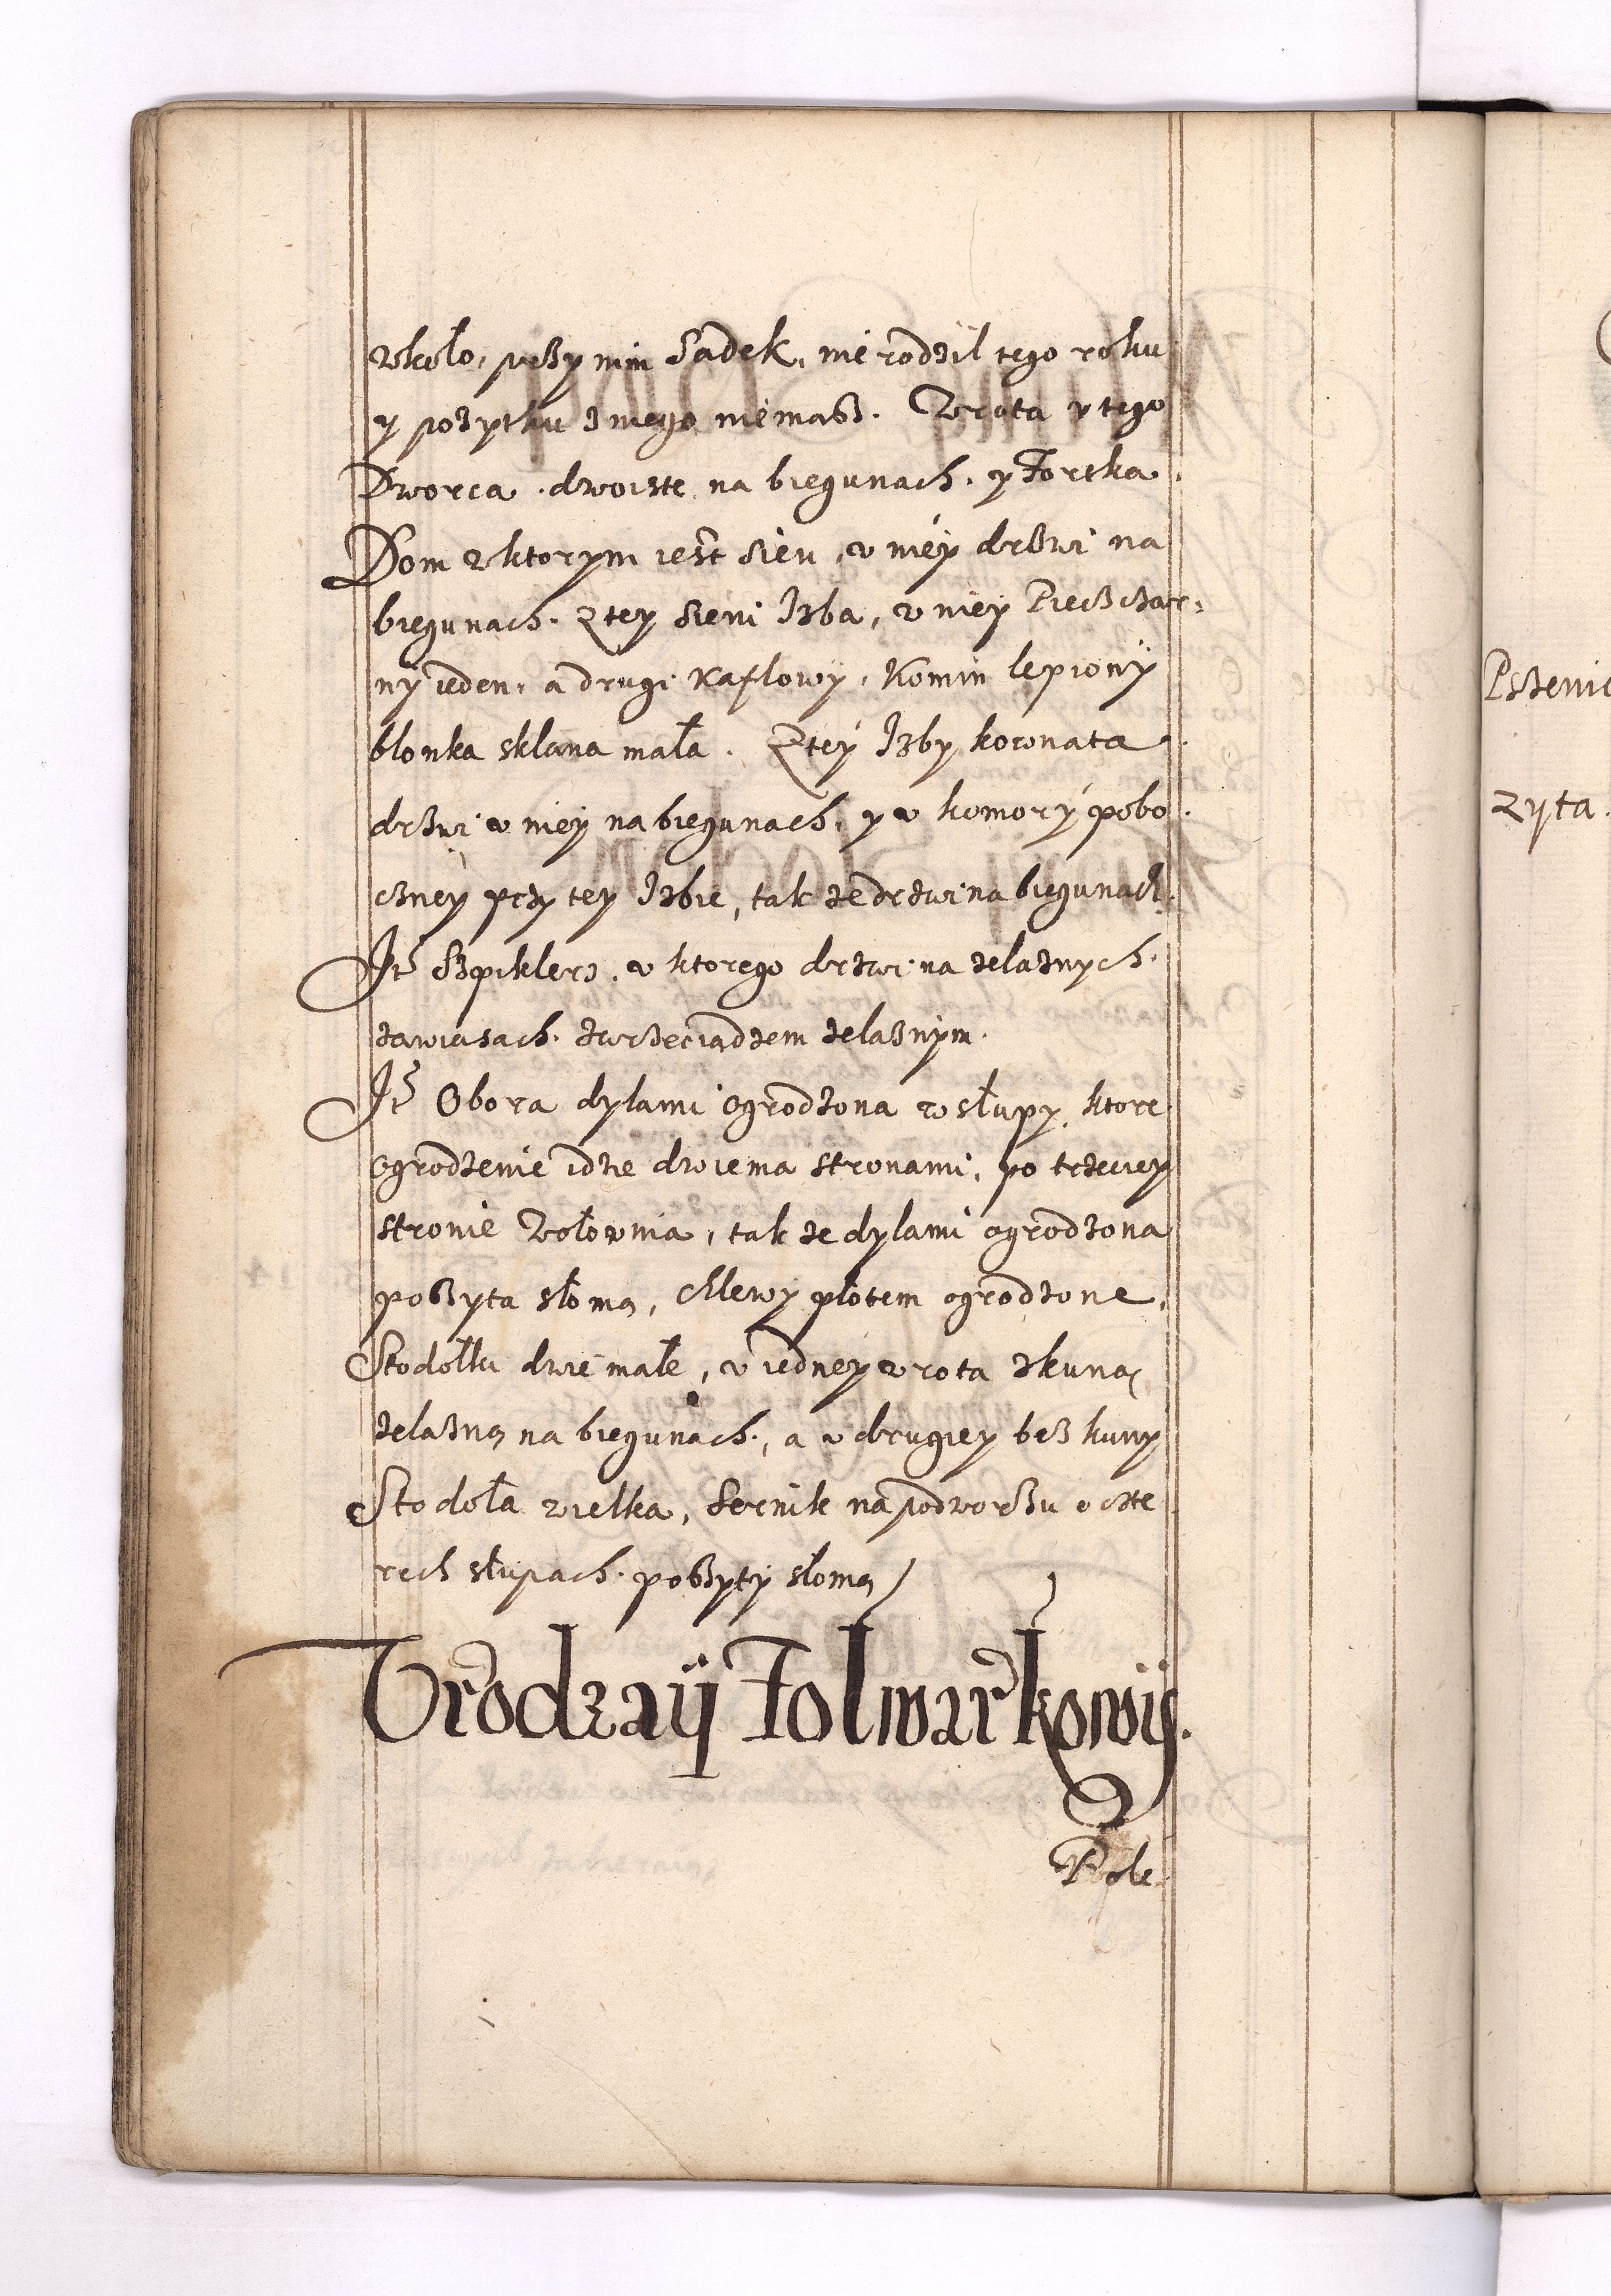 wkoło, przy nim Sadek, nie rodził tego roku
y pozytku z niego niemasz. Wrota v tego
Dworca dwoiste na biegunach. y Fortka.
Dom w ktorym iest sień, v niéy drzwi na
biegunach. Z tey sieni Izba, w niey Piecz czar:
ny ieden, a drugi kaflowy, Komin lepiony
błonka sklana mała. Z téy Izby komnata
drzwi v niey na biegunach, y v komory pobo
czney przy tey Izbie, tak ze drzwi na biegunach.
It Szpiklerz, v ktorego drzwi na zelaznych
zawiasach. z wrzeciądzem zelaznym.
It Obora dylami ogrodzona w słupy, ktore
ogrodzenie idzie dwiema stronami, po trzeciey
stronie Wołownia, tak ze dylami ogrodzona
poszyta słomą, Chlewy płotem ogrodzone.
Stodołki dwie małe, v iedney wrota z kuną
zelazną na biegunach, a v drugiey bez kuny
Stodoła wielka, Sernik na podworzu o czte
rech słupach. poszyty słomą
Vrodzaÿ Folwarkowÿ.
Pole.
Pszenic
zyta.